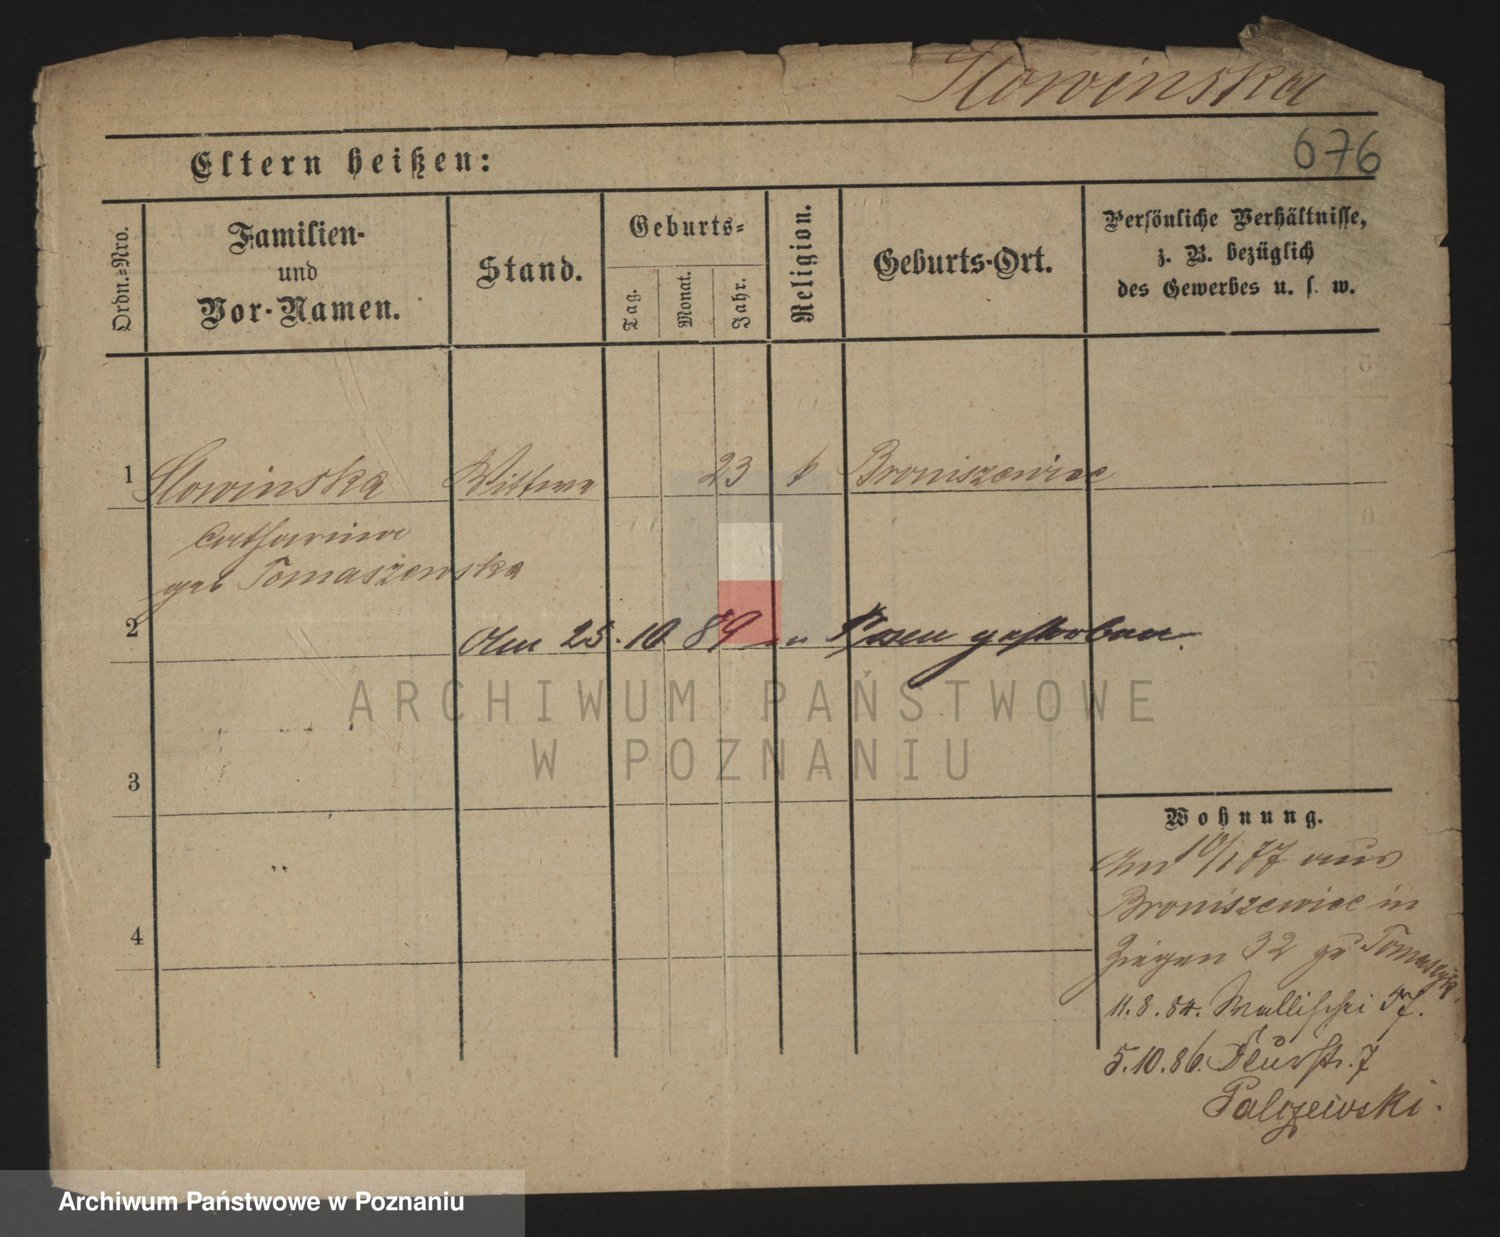 Slowinska
676
Eltern heißen:
Ordn.-Nro.
Familien-
und
Vor-Namen.
Stand.
Geburts-
Tag.
Monat.
Jahr.
Religion.
Geburts-Ort.
Persönliche Verhältnisse,
z. B. bezüglich
des Gewerbes u. s. w.
1 Slowinska Wittwe 23 k Broniszewice
Catharina
geb Tomaszewska
2 Am 25.10 89 in Posen gestorben.
3
4
Wohnung.
Am 10/1 77 aus
Broniszewice in
32 zu
11.8.84. Wallischei 57.
5.10.86. 7
Palczewski.
ARCHIWUM PAŃSTWOWE
W POZNANIU
Archiwum Państwowe w Poznaniu